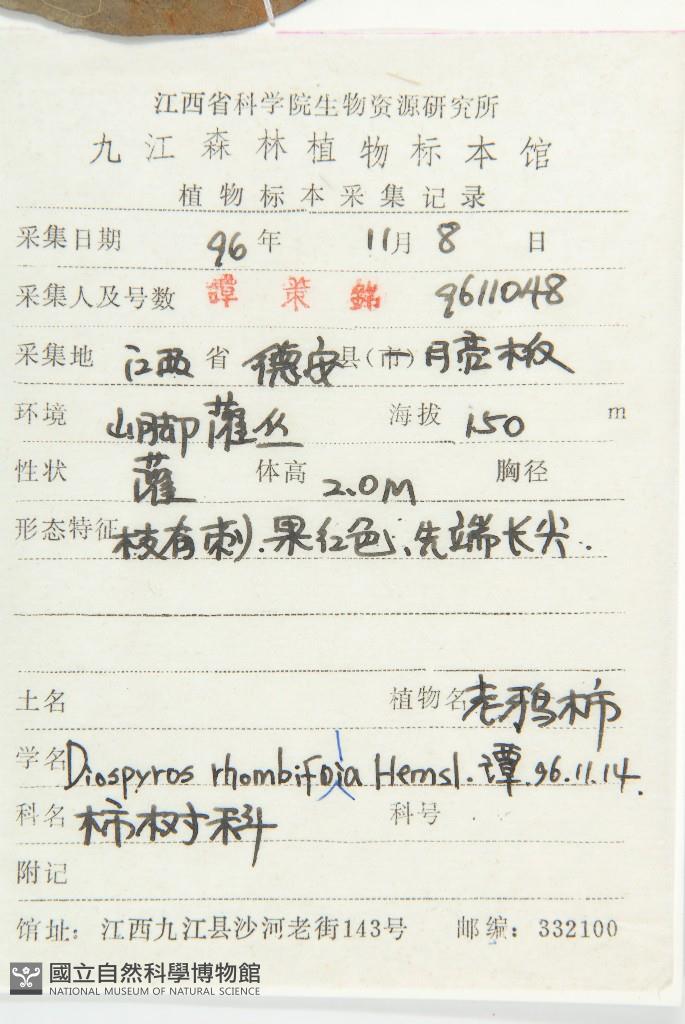 江西省科学院生物资源研究所
九江森林植物标本馆
植物标本采集记录
采集日期 96年 11月 8 日
采集人及号数 譚策銘 9611048
采集地 江西 省 德安 县(市) 月亮板
环境 山脚灌丛 海拔 150 m
性状 灌 体高 2.0M 胸径
形态特征 枝有刺、果红色、先端长尖.
土名 植物名 老鸦柿
学名 Diospyros rhombifoia Hemsl. 譚.96.11.14.
科名 柿树科 科号
附记
馆址: 江西九江县沙河老街143号 邮编: 332100
國立自然科學博物館
NATIONAL MUSEUM OF NATURAL SCIENCE